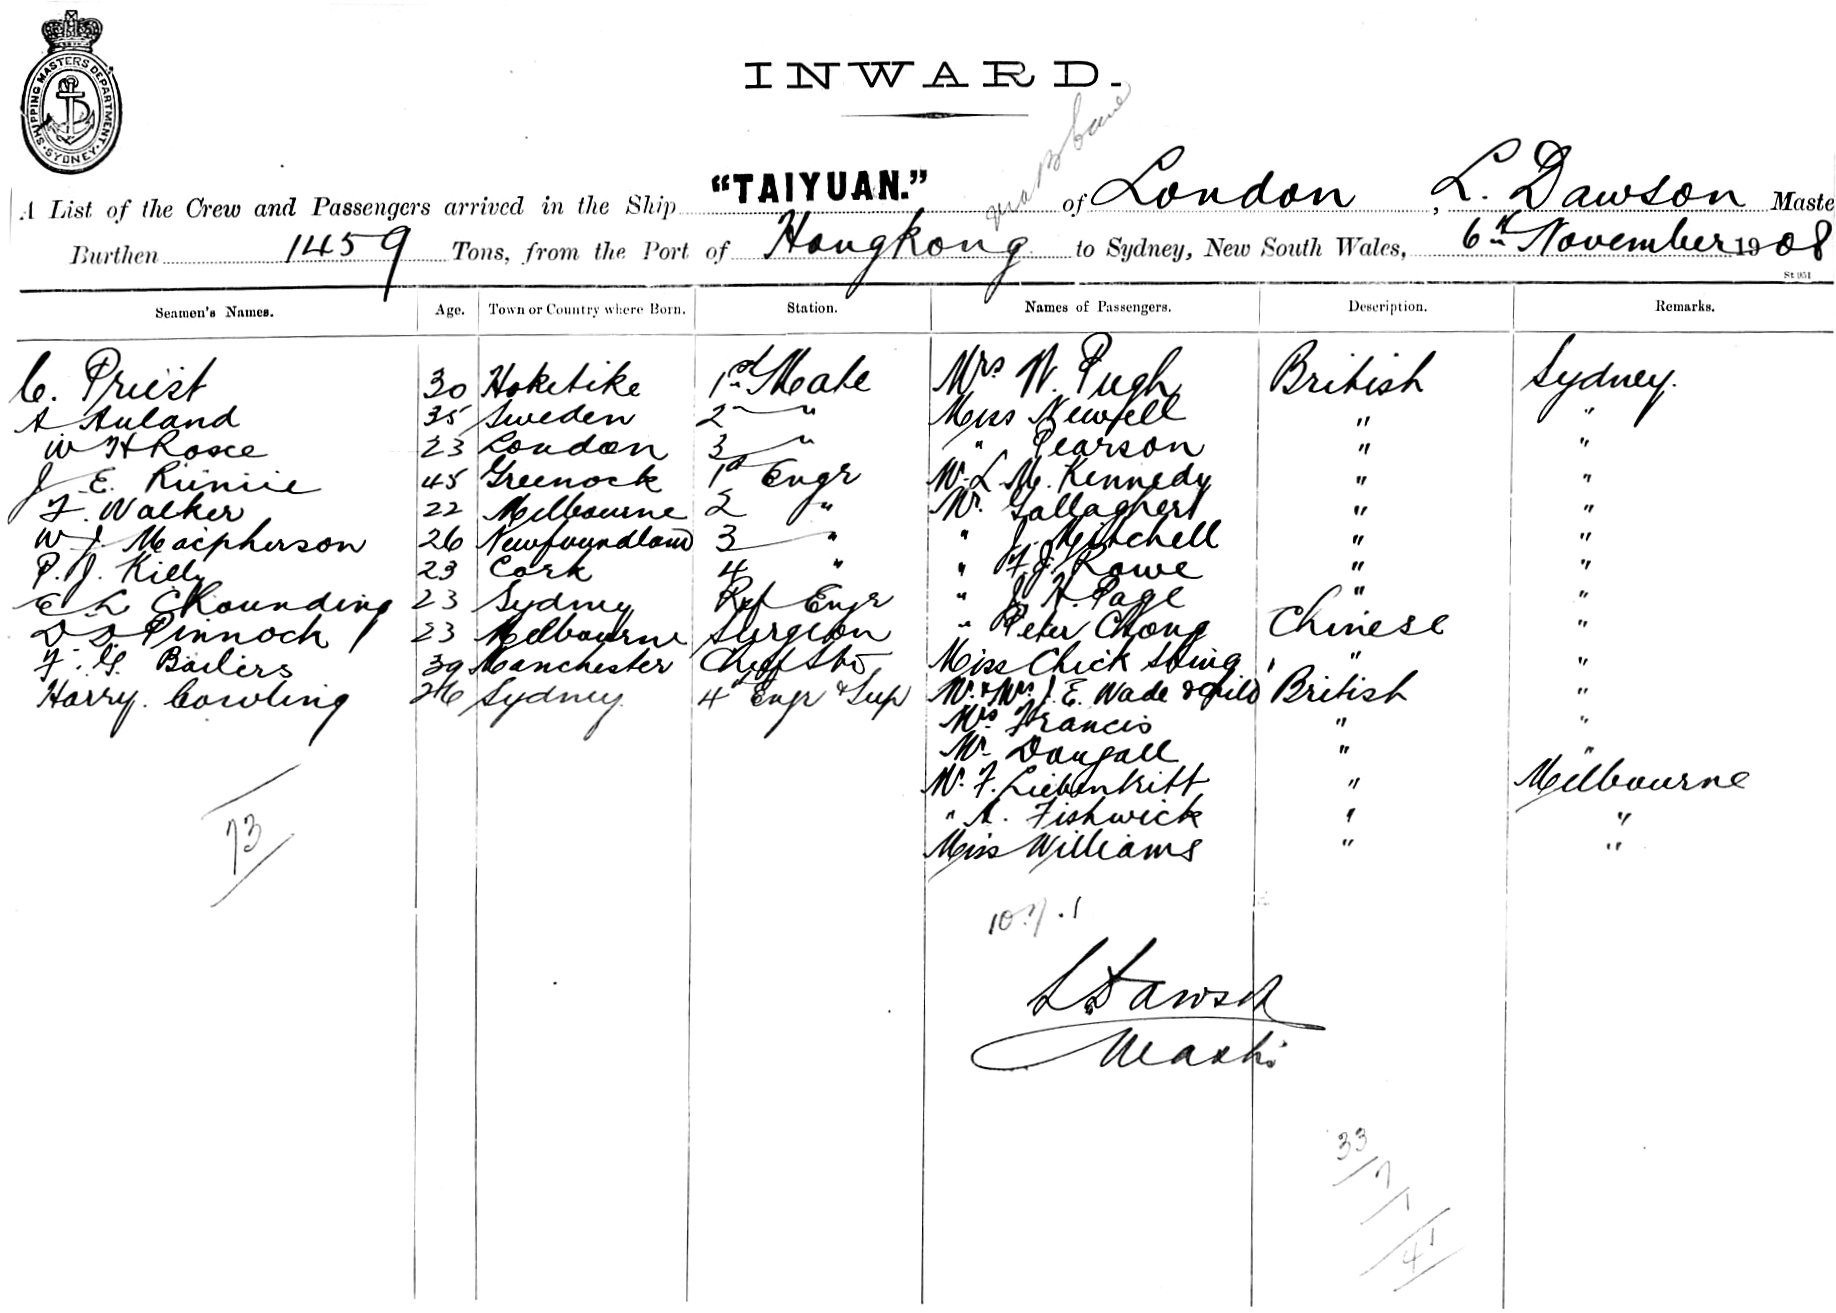 SHIPPING MASTERS DEPARTMENT. SYDNEY
INWARD.
A List of the Crew and Passengers arrived in the Ship "TAIYUAN." of London, L. Dawson Maste
Burthen 1459 Tons, from the Port of Hongkong to Sydney, New South Wales, 6th November 1908
St 051
Seamen's Names. Age. Town or Country where Born. Station. Names of Passengers. Description. Remarks.
C. Priest 30 Hokitike 1st Mate Mrs W. Pugh British Sydney.
A Auland 35 Sweden 2 " Miss Newell " "
W H Rosce 23 London 3 " " Pearson " "
J E. 45 Greenock 1st Engr Mr L. M. Kennedy " "
F. Walker 22 Melbourne 2 " Mr. Gallagher " "
W J Macpherson 26 Newfoundland 3 " " J. Mitchell " "
P. J. Killy 23 Cork 4 " " F. J. Rowe " "
E L 23 Sydney Ref Engr " J. H. Page " "
D D Pinnock 23 Melbourne Surgeon " Peter Chong Chinese "
F. G. Bailers 39 Manchester Chief Std Miss Chick " "
Harry. Cowling 26 Sydney 4th Engr & Sup Mr & Mrs J. E. Wade & Child British "
Mrs Francis " "
Mr Dougall " "
Mr. F. Liebentritt " Melbourne
" A. Fishwick " "
Miss Williams " "
73
10.7.1
L Dawson
Master
33
7
1
41